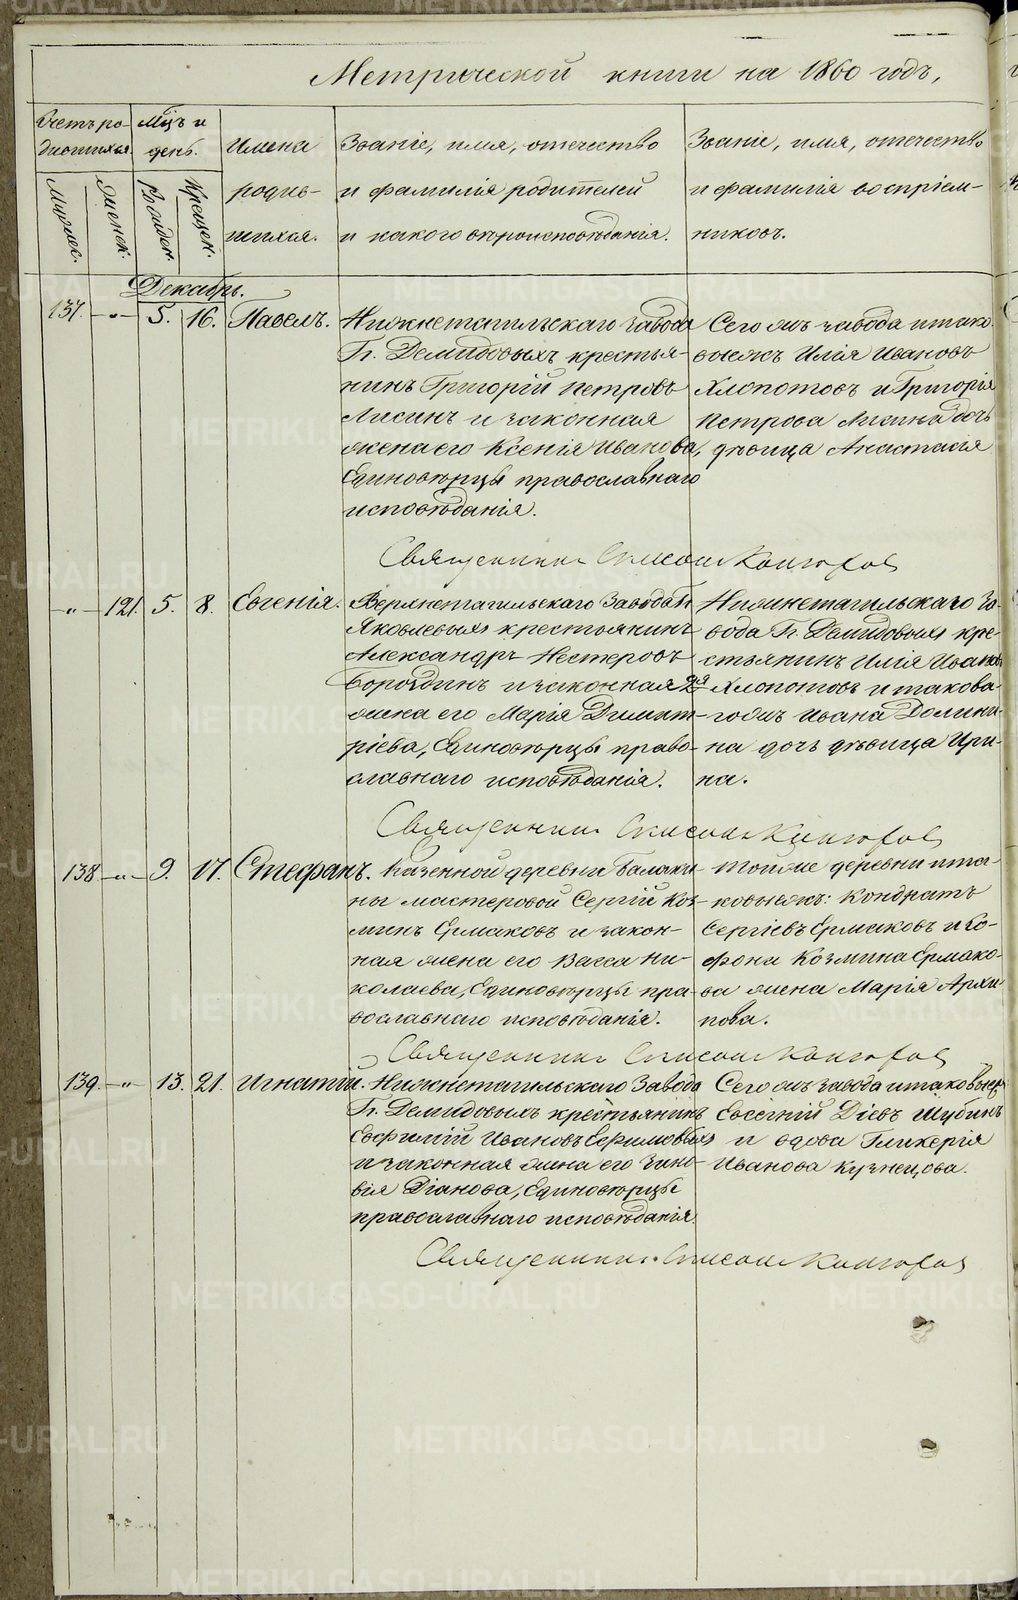 Метрической книги на 1860 годъ,
Счетъ ро-
дившихся.
Мужес.
Женск.
Мѣцъ и
день.
Рожден.
Крещен.
Имена
родив-
шихся.
Званіе, имя, отечество
и фамилія родителей
и какого вѣроисповѣданія.
Званіе, имя, отечество
и фамилія воспріем-
никовъ.
Декабрь.
137. — „ — 5. 16. Павелъ.
Нижнетагильскаго завода
Гг. Демидовыхъ крестья-
нинъ Григорій Петровъ
Лисинъ и законная
жена его Ксенія Иванова,
Единовѣрцы православнаго
исповѣданія.
Сего жъ завода и тако-
выежъ Илія Ивановъ
Хлопотовъ и Григорія
Петрова Лисина дочь
дѣвица Анастасія
Священникъ Симеонъ
— „ — 121. 5. 8. Евгенія.
Верхнетагильскаго Завода Гг.
Яковлевыхъ крестьянинъ
Александръ Нестеровъ
Бороздинъ и законная 2я
жена его Марія Димит-
ріева, Единовѣрцы право-
славнаго исповѣданія.
Нижнетагильскаго За-
вода Гг. Демидовыхъ кре-
стьянинъ Илія Ивановъ
Хлопотовъ и такова-
гожъ Ивана Долини-
на дочь дѣвица Ири-
на.
Священникъ Симеонъ
138 — „ — 9. 17. Стефанъ.
Казенной деревни Балаки-
ны мастеровой Сергій Коз-
минъ Ермаковъ и закон-
ная жена его Васса Ни-
колаева, Единовѣрцы пра-
вославнаго исповѣданія.
Тойже деревни и та-
ковыежъ: Кондратъ
Сергіевъ Ермаковъ и Со-
фона Козмина Ермако-
ва жена Марія Архи-
пова.
Священникъ Симеонъ
139. — „ — 13. 21. Игнатій.
Нижнетагильскаго Завода
Гг. Демидовыхъ крестьянинъ
Евфимій Ивановъ
и законная жена его Зино-
вія Діанова, Единовѣрцы
православнаго исповѣданія.
Сего жъ завода и таковыеж
Евсегній Діевъ Шубинъ
и вдова Гликерія
Иванова Кузнецова.
Священникъ Симеонъ
METRIKI.GASO-URAL.RU